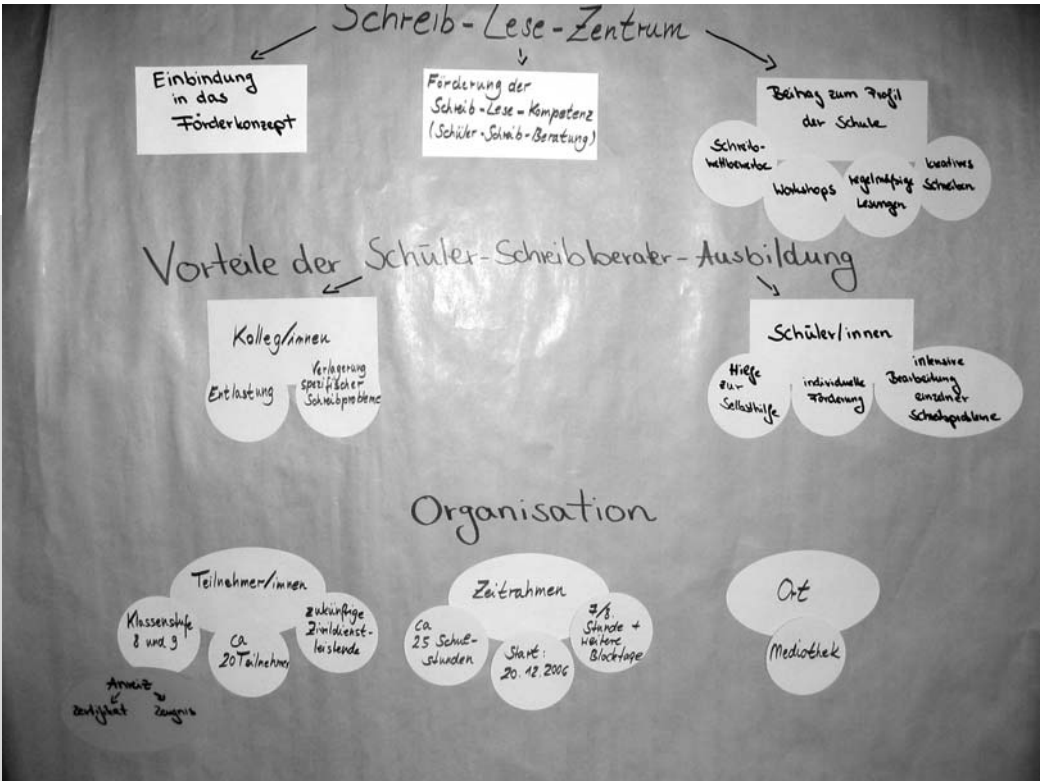 Schreib-Lese-Zentrum
Einbindung
in das
Förderkonzept
Förderung der
Schreib-Lese-Kompetenz
(Schüler-Schreib-Beratung)
Beitrag zum Profil
der Schule
Schreib-
wettbewerbe
Workshops
regelmäßige
Lesungen
kreatives
Schreiben
Vorteile der Schüler-Schreibberater-Ausbildung
Kolleg/innen
Entlastung
Verlagerung
spezifischer
Schreibprobleme
Schüler/innen
Hilfe
zur
Selbsthilfe
individuelle
Förderung
intensive
Bearbeitung
einzelner
Schreibprobleme
Organisation
Teilnehmer/innen
Klassenstufe
8 und 9
ca
20 Teilnehmer
zukünftige
Zivildienst-
leistende
Anreiz
Zertifikat Zeugnis
Zeitrahmen
ca.
25 Schul-
stunden
Start:
20.12.2006
7/8.
Stunde +
weitere
Blocktage
Ort
Mediothek